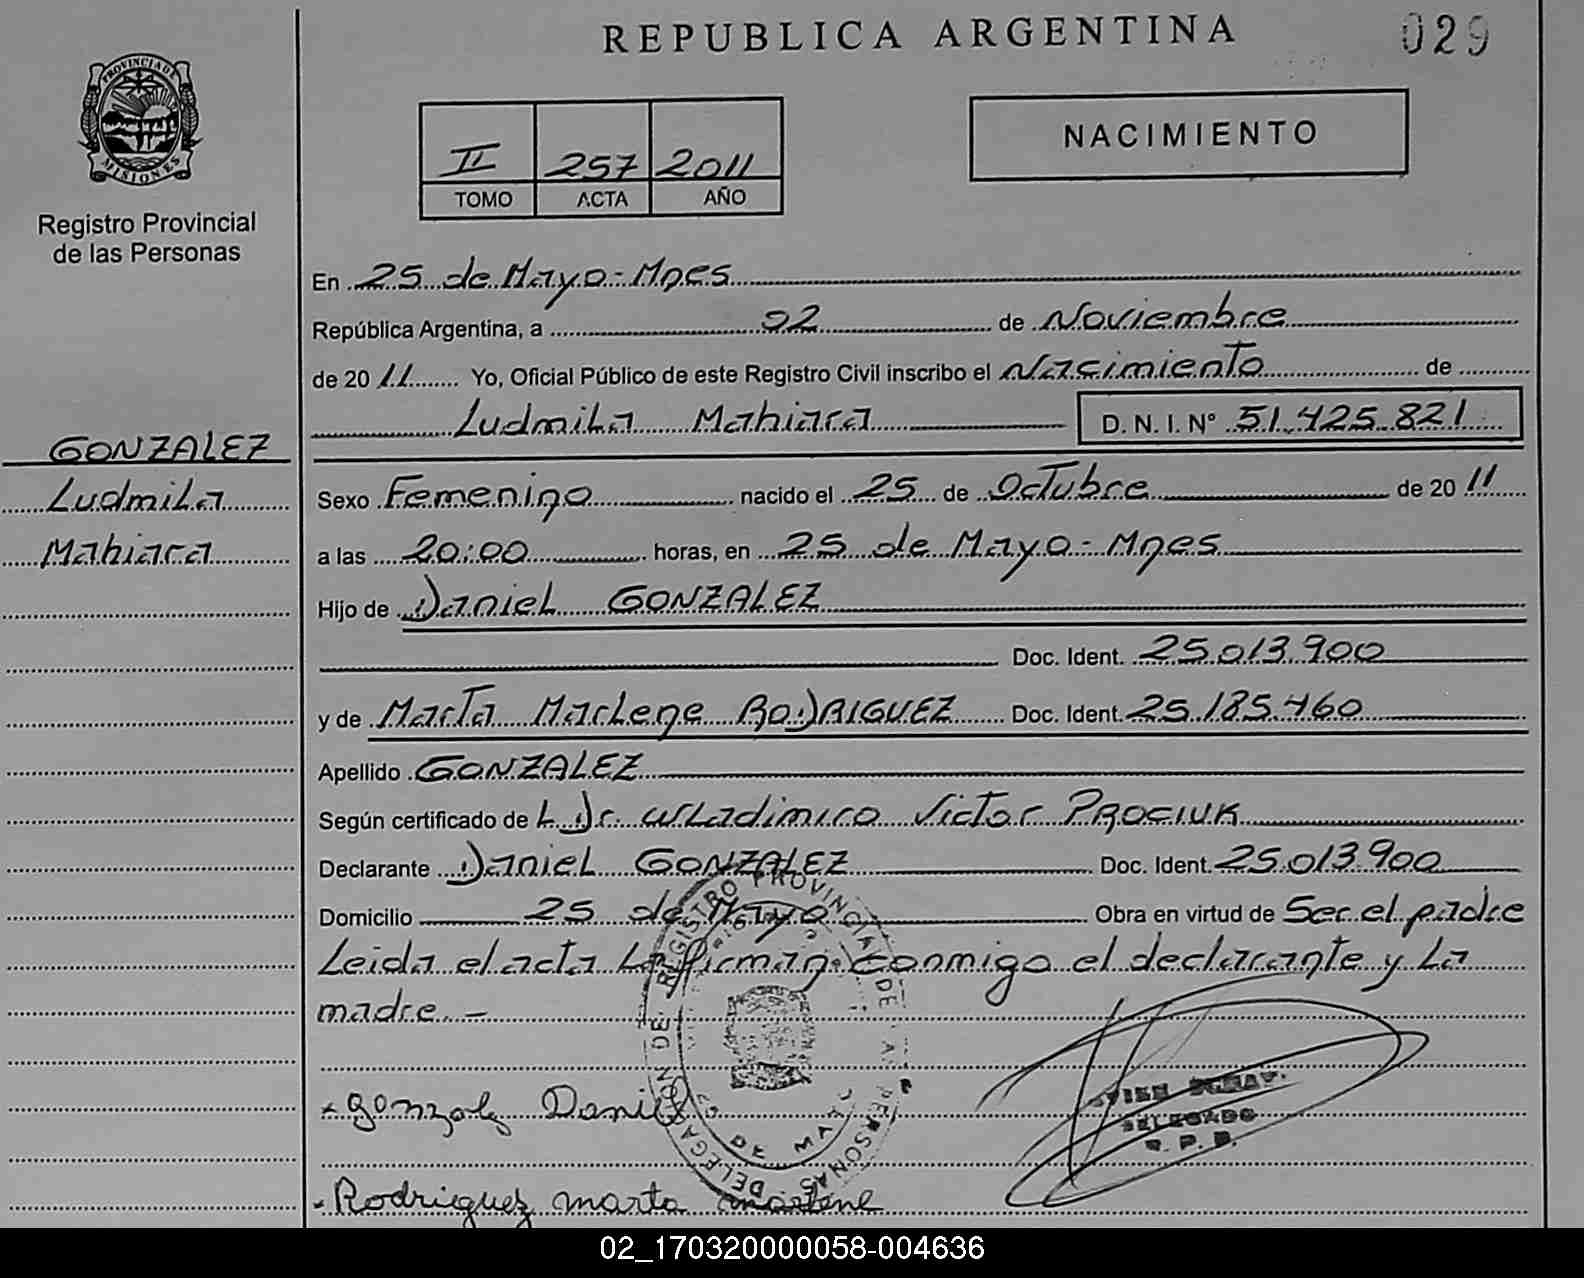 REPUBLICA ARGENTINA
029
PROVINCIA DE
MISIONES
Registro Provincial
de las Personas
II 257 2011
TOMO ACTA AÑO
NACIMIENTO
GONZALEZ
Ludmila
Mahiara
En 25 de Mayo - Mnes
República Argentina, a 02 de Noviembre
de 2011 Yo, Oficial Público de este Registro Civil inscribo el Nacimiento de
Ludmila Mahiara D. N. I. Nº 51.425.821
Sexo Femenino nacido el 25 de Octubre de 2011
a las 20:00 horas, en 25 de Mayo - Mnes
Hijo de Daniel GONZALEZ
Doc. Ident. 25.013.900
y de Marta Marlene RODRIGUEZ Doc. Ident. 25.185.460
Apellido GONZALEZ
Según certificado de L. Dr. Wladimiro Victor PROCIUK
Declarante Daniel GONZALEZ Doc. Ident. 25.013.900
Domicilio 25 de Mayo Obra en virtud de Ser el padre
Leida el acta La firman conmigo el declarante y La
madre. -
DELEGACIÓN DE REGISTRO PROVINCIAL DE LAS PERSONAS
25 DE MAYO
Gonzalez Daniel
DELEGADO
R. P. P.
Rodriguez marta marlene
02_170320000058-004636